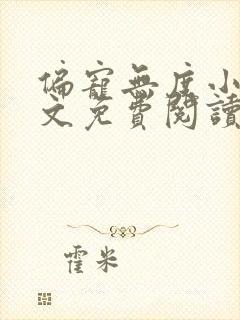 偏寵無度小
文免費閱讀
霍米